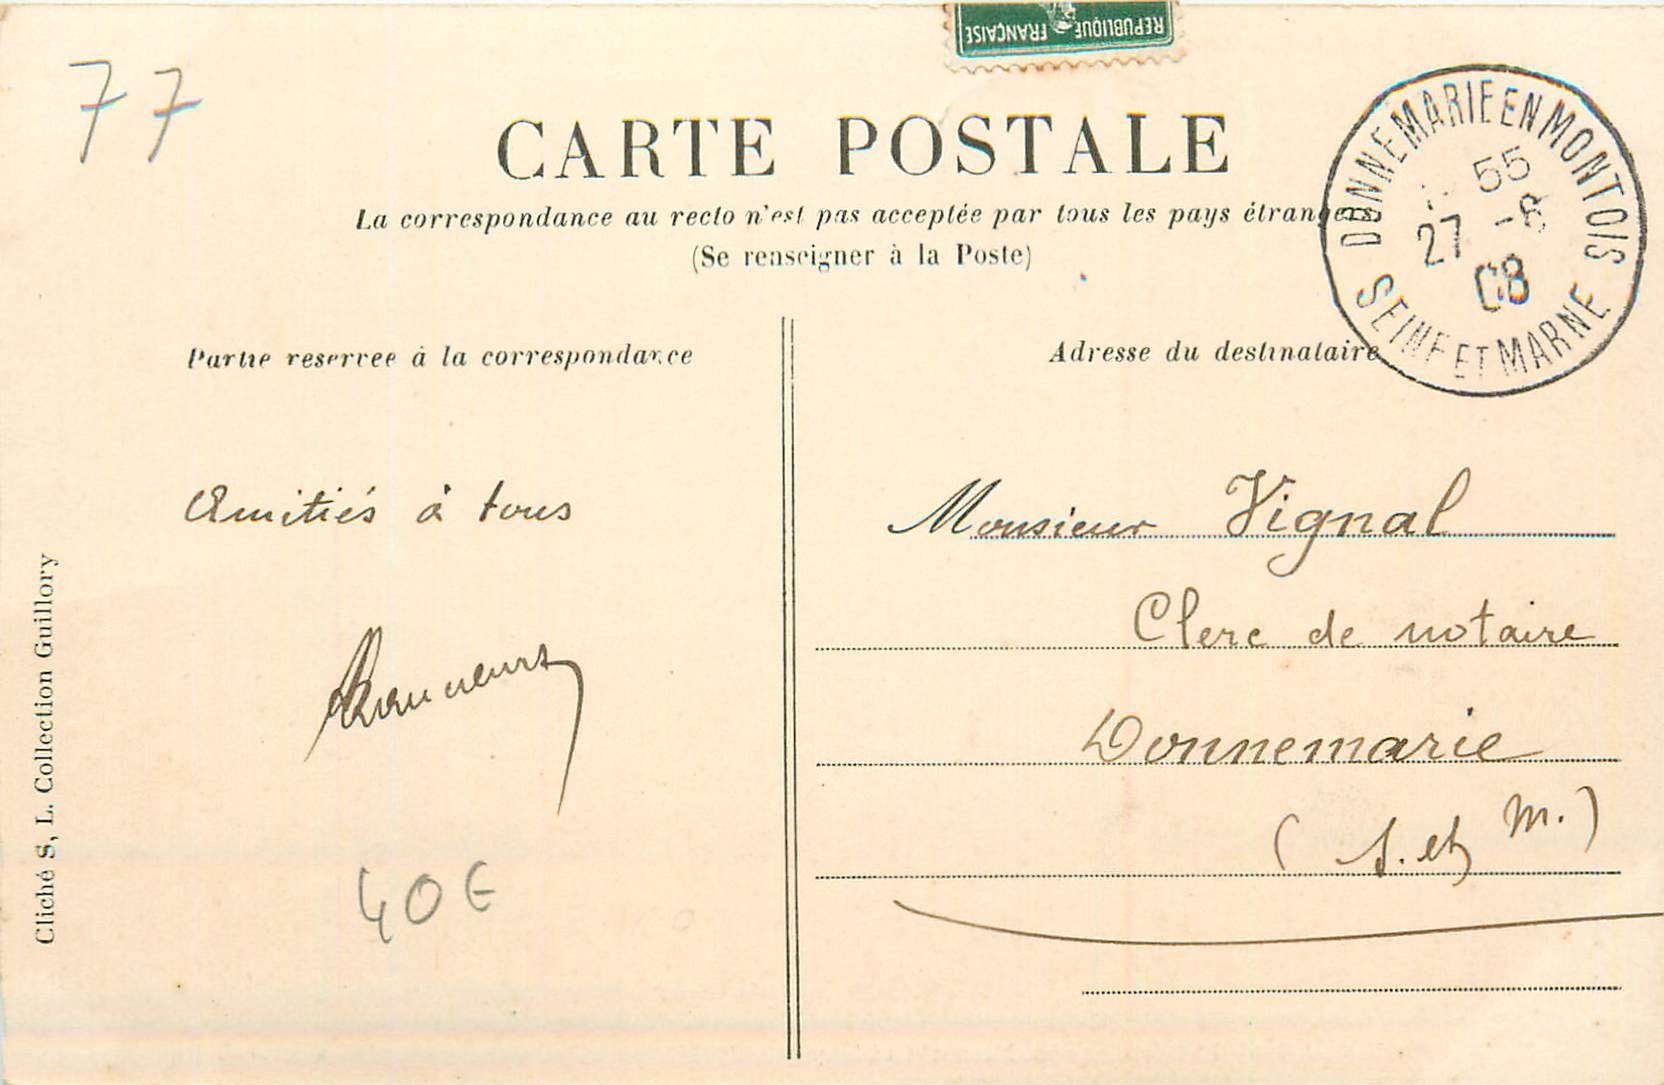 RÉPUBLIQUE FRANÇAISE
77
CARTE POSTALE
La correspondance au recto n'est pas acceptée par tous les pays étrangers
(Se renseigner à la Poste)
DONNEMARIE EN MONTOIS
55
27 -8
08
SEINE ET MARNE
Partie reservee à la correspondance
Adresse du destinataire
Amitiés à tous
40 €
Monsieur Vignal
Clerc de notaire
Donnemarie
(S. et M.)
Cliché S, L. Collection Guillory